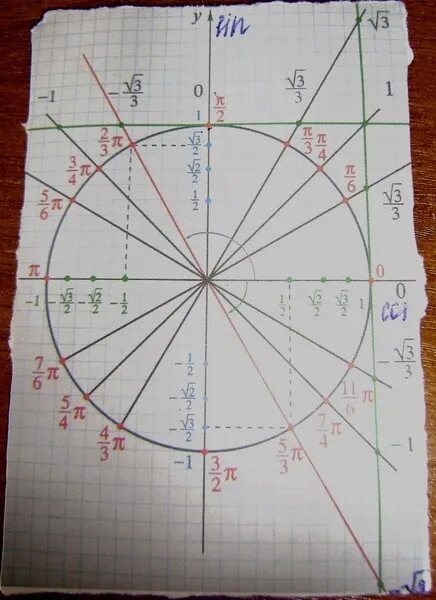 y sin
√3
-√3/3
√3/3
0
1
-1
1
π/2
2/3 π
√3/2
π/3
π/4
3/4 π
√2/2
π/6
5/6 π
1/2
√3/3
π
0
-1
-√3/2
-√2/2
-1/2
1/2
√2/2
√3/2
1
0
cos
-1/2
-√3/3
7/6 π
-√2/2
11/6 π
5/4 π
-√3/2
7/4 π
4/3 π
5/3 π
-1
-1
3/2 π
-√3